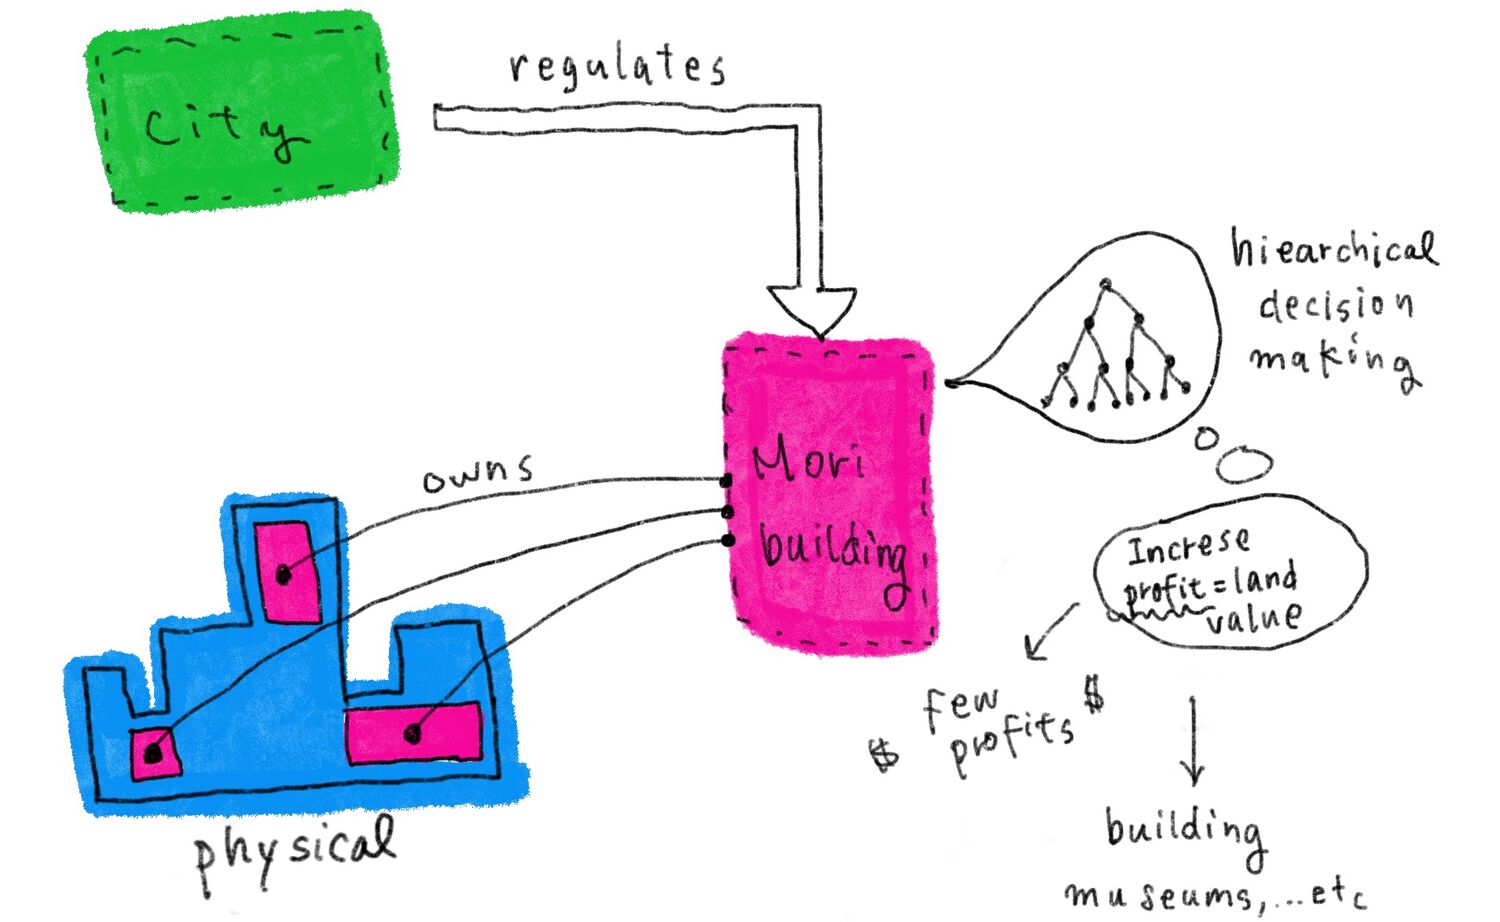 City
regulates
hiearchical
decision
making
Mori
building
owns
Increse
profit = land
value
$ few $
profits
building
museums, ... etc
physical